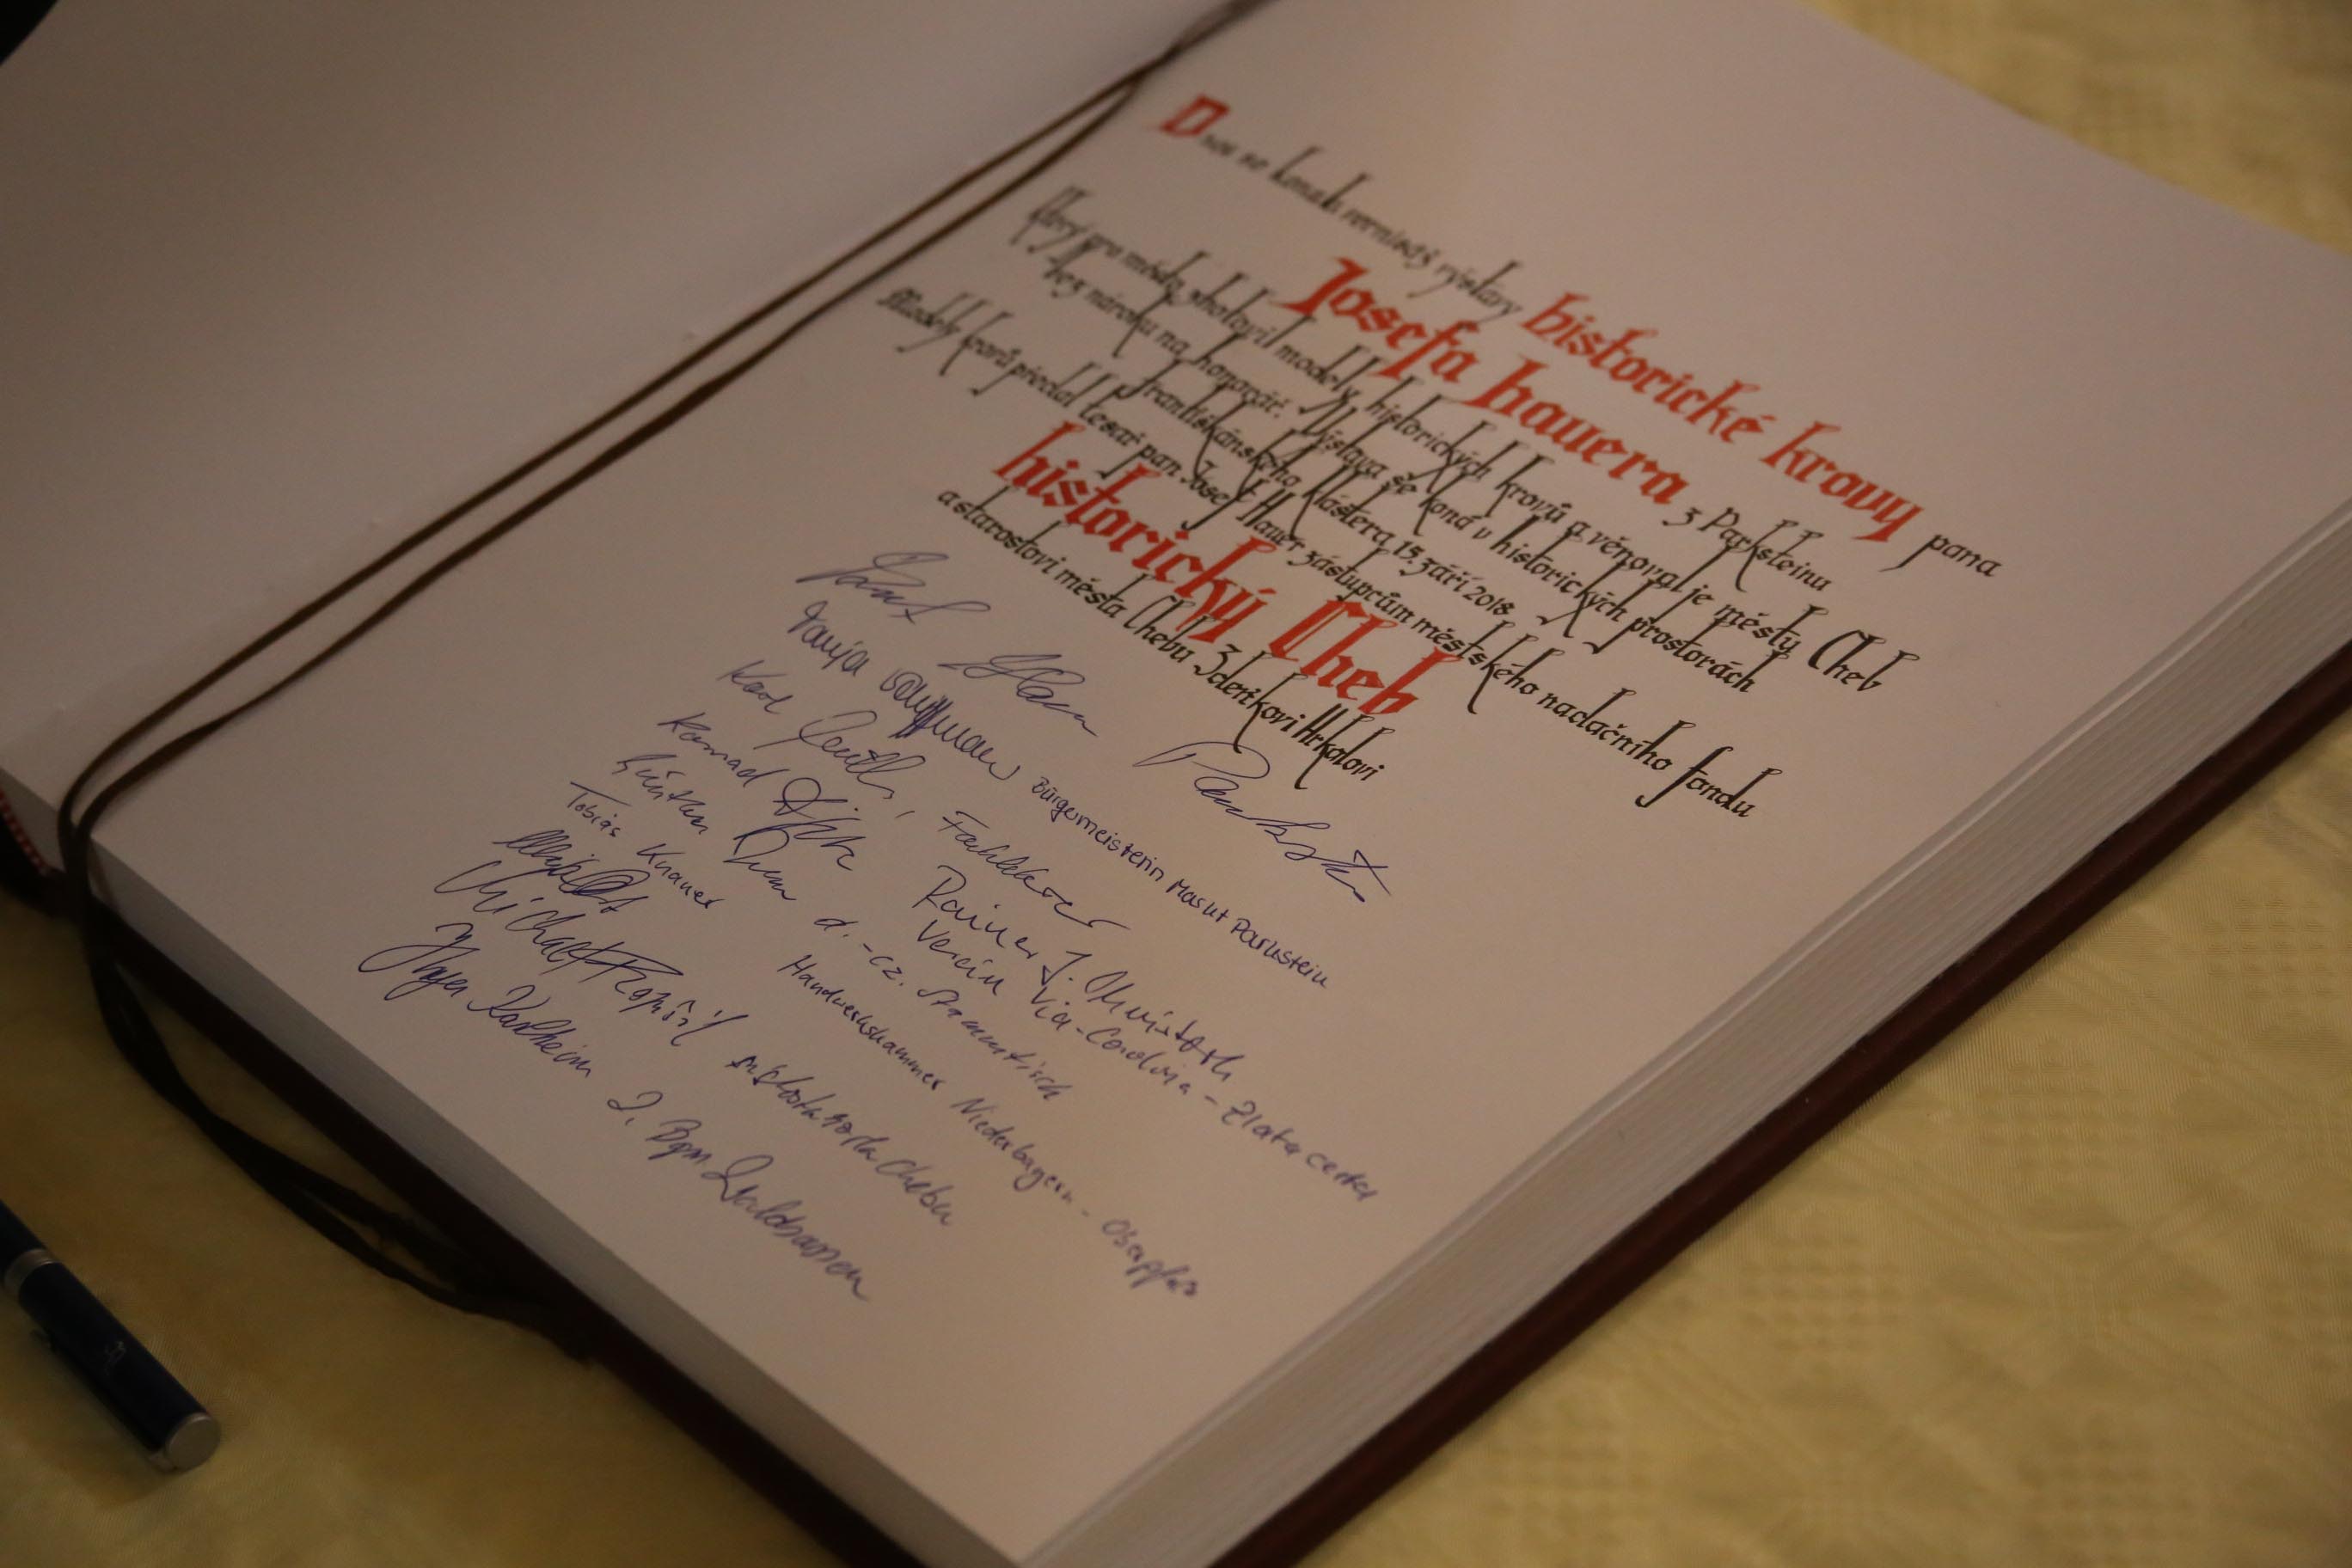 Dnes se konala vernisáž výstavy historické krovy pana
Josefa hauera z Parksteinu
který pro město zhotovil modely historických krovů a věnoval je městu Cheb
bez nároku na honorář. Výstava se koná v historických prostorách
františkánského kláštera 15. září 2018
Modely krovů předal tesař pan Josef Hauer zástupcům městského nadačního fondu
historický Cheb
a starostovi města Chebu Zdeňkovi Hrkalovi
Josef Hauer Parkstein
Tanja Bürgermeisterin Markt Parkstein
Karl
Konrad Rainer J. Christoph
Verein Via-Carolina - Zlatá cesta
Günther d.-cz. Stammtisch
Tobias Knauer Handwerkskammer Niederbayern - Oberpfalz
Michael Pospíšil místostarosta Chebu
Karlheinz 2. Bgm. Waldsassen